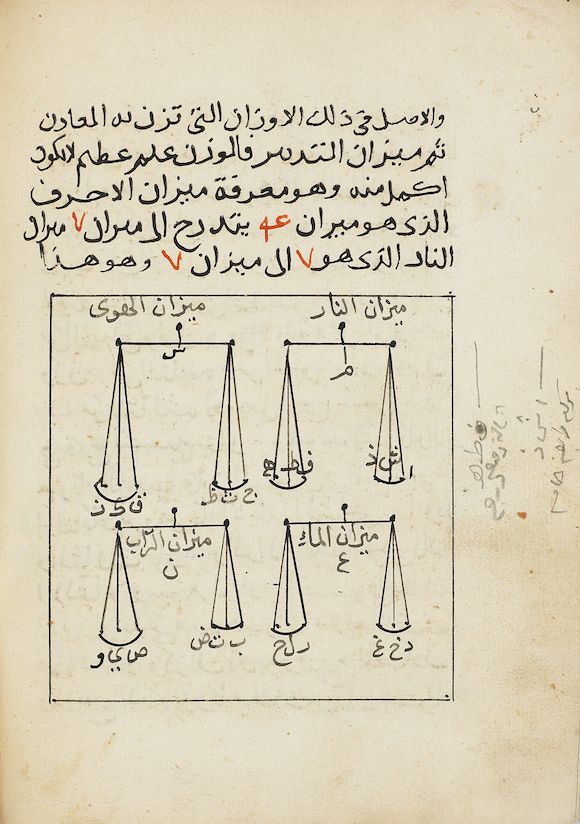 والاصل في ذلك الاوزان التي تزن به المعادن
ثم ميزان التدبير فالوزن علم عظيم لا يكون
اكمل منه وهو معرفة ميزان الاحرف
الذي هو ميران يتدرج الى ميزان ٧ ميزان
الناد الذي هو ٧ الى ميزان ٧ وهو هذا
ميزان النار
ميزان الهوى
م
س
ا ش ذ
ف ط ه
ج ث ظ
ق ك ز
ميزان الماء
ميزان التراب
ع
ن
د خ غ
ر ل ح
ب ت ض
ص ي و